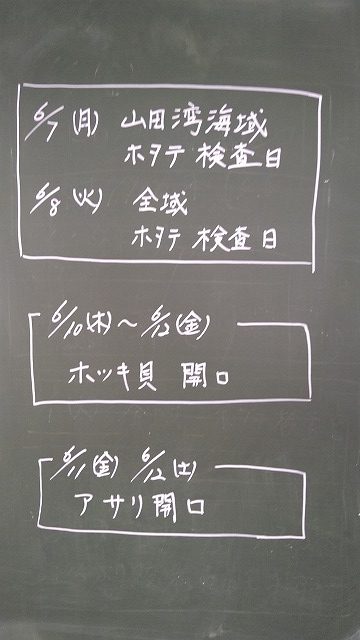 6/7 (月) 山田湾海域
ホタテ 検査日
6/8 (火) 全域
ホタテ 検査日
6/10(木)～6/12(金)
ホッキ貝 開口
6/11(金) 6/12(土)
アサリ開口